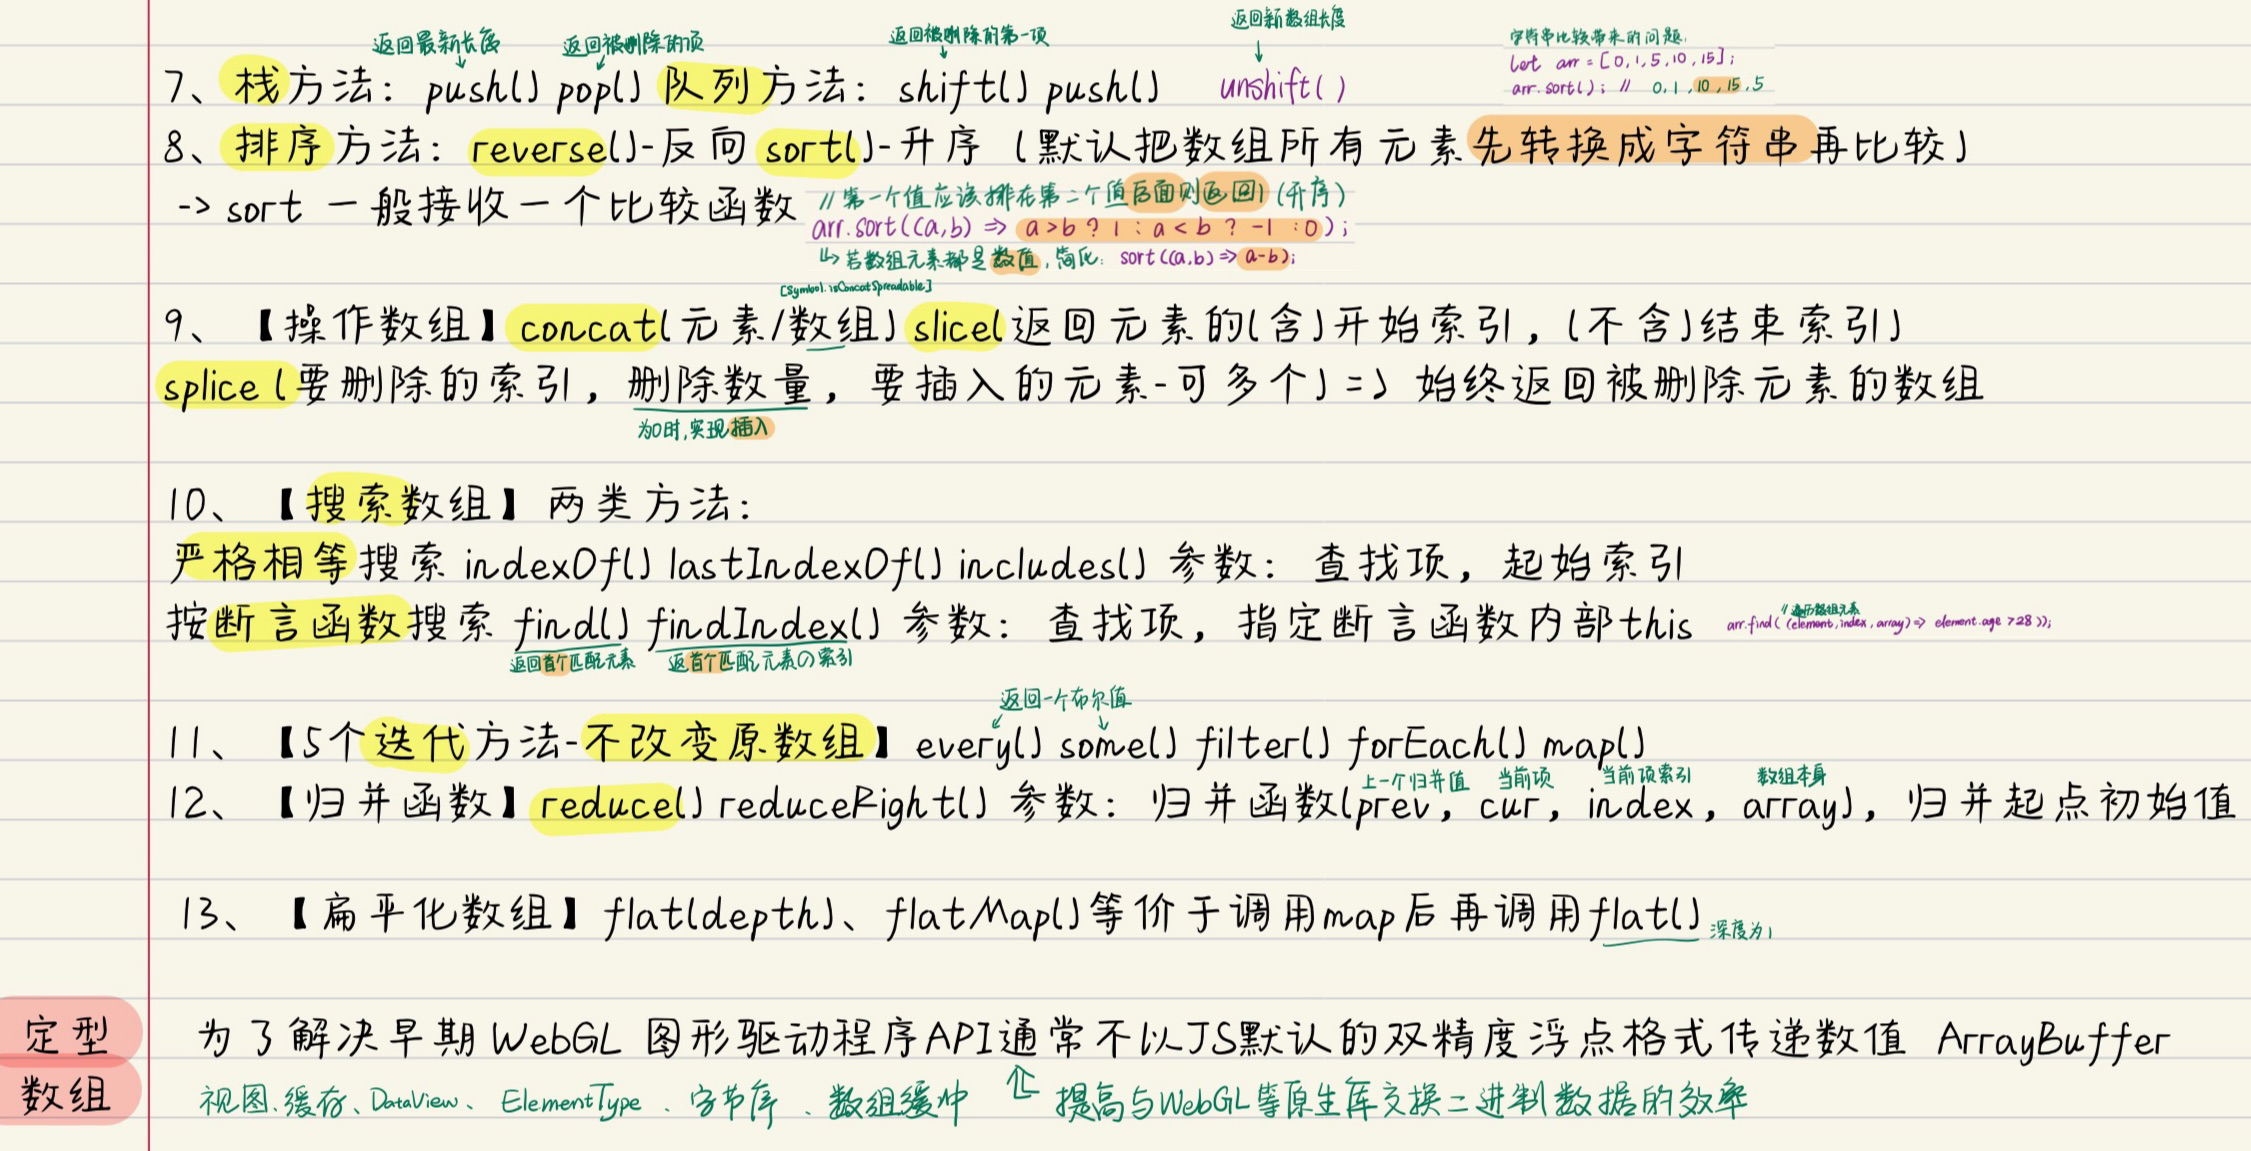 返回最新长度 返回被删除的项 返回被删除的第一项 返回新数组长度
7、栈方法：push() pop() 队列方法：shift() push() unshift()
字符串比较带来的问题.
let arr = [0,1,5,10,15];
arr.sort(); // 0,1,10,15,5
8、排序方法：reverse()-反向 sort()-升序（默认把数组所有元素先转换成字符串再比较）
-> sort 一般接收一个比较函数
//第一个值应该排在第二个值后面则返回1(升序)
arr.sort((a,b) => a>b ? 1 : a<b ? -1 :0);
↳若数组元素都是数值,简化: sort((a,b)=>a-b);
[Symbol.isConcatSpreadable]
9、【操作数组】concat(元素/数组) slice(返回元素的(含)开始索引，(不含)结束索引)
splice(要删除的索引，删除数量，要插入的元素-可多个) => 始终返回被删除元素的数组
为0时,实现插入
10、【搜索数组】两类方法：
严格相等搜索 indexOf() lastIndexOf() includes() 参数：查找项，起始索引
按断言函数搜索 find() findIndex() 参数：查找项，指定断言函数内部this
//遍历数组元素
arr.find((element,index,array)=> element.age >28));
返回首个匹配元素 返首个匹配元素の索引
返回一个布尔值
11、【5个迭代方法-不改变原数组】every() some() filter() forEach() map()
上一个归并值 当前项 当前项索引 数组本身
12、【归并函数】reduce() reduceRight() 参数：归并函数(prev，cur，index，array)，归并起点初始值
13、【扁平化数组】flat(depth)、flatMap()等价于调用map后再调用flat() 深度为1
定型
数组
为了解决早期WebGL 图形驱动程序API通常不以JS默认的双精度浮点格式传递数值 ArrayBuffer
视图.缓存、DataView、ElementType、字节序、数组缓冲 提高与WebGL等原生库交换二进制数据的效率